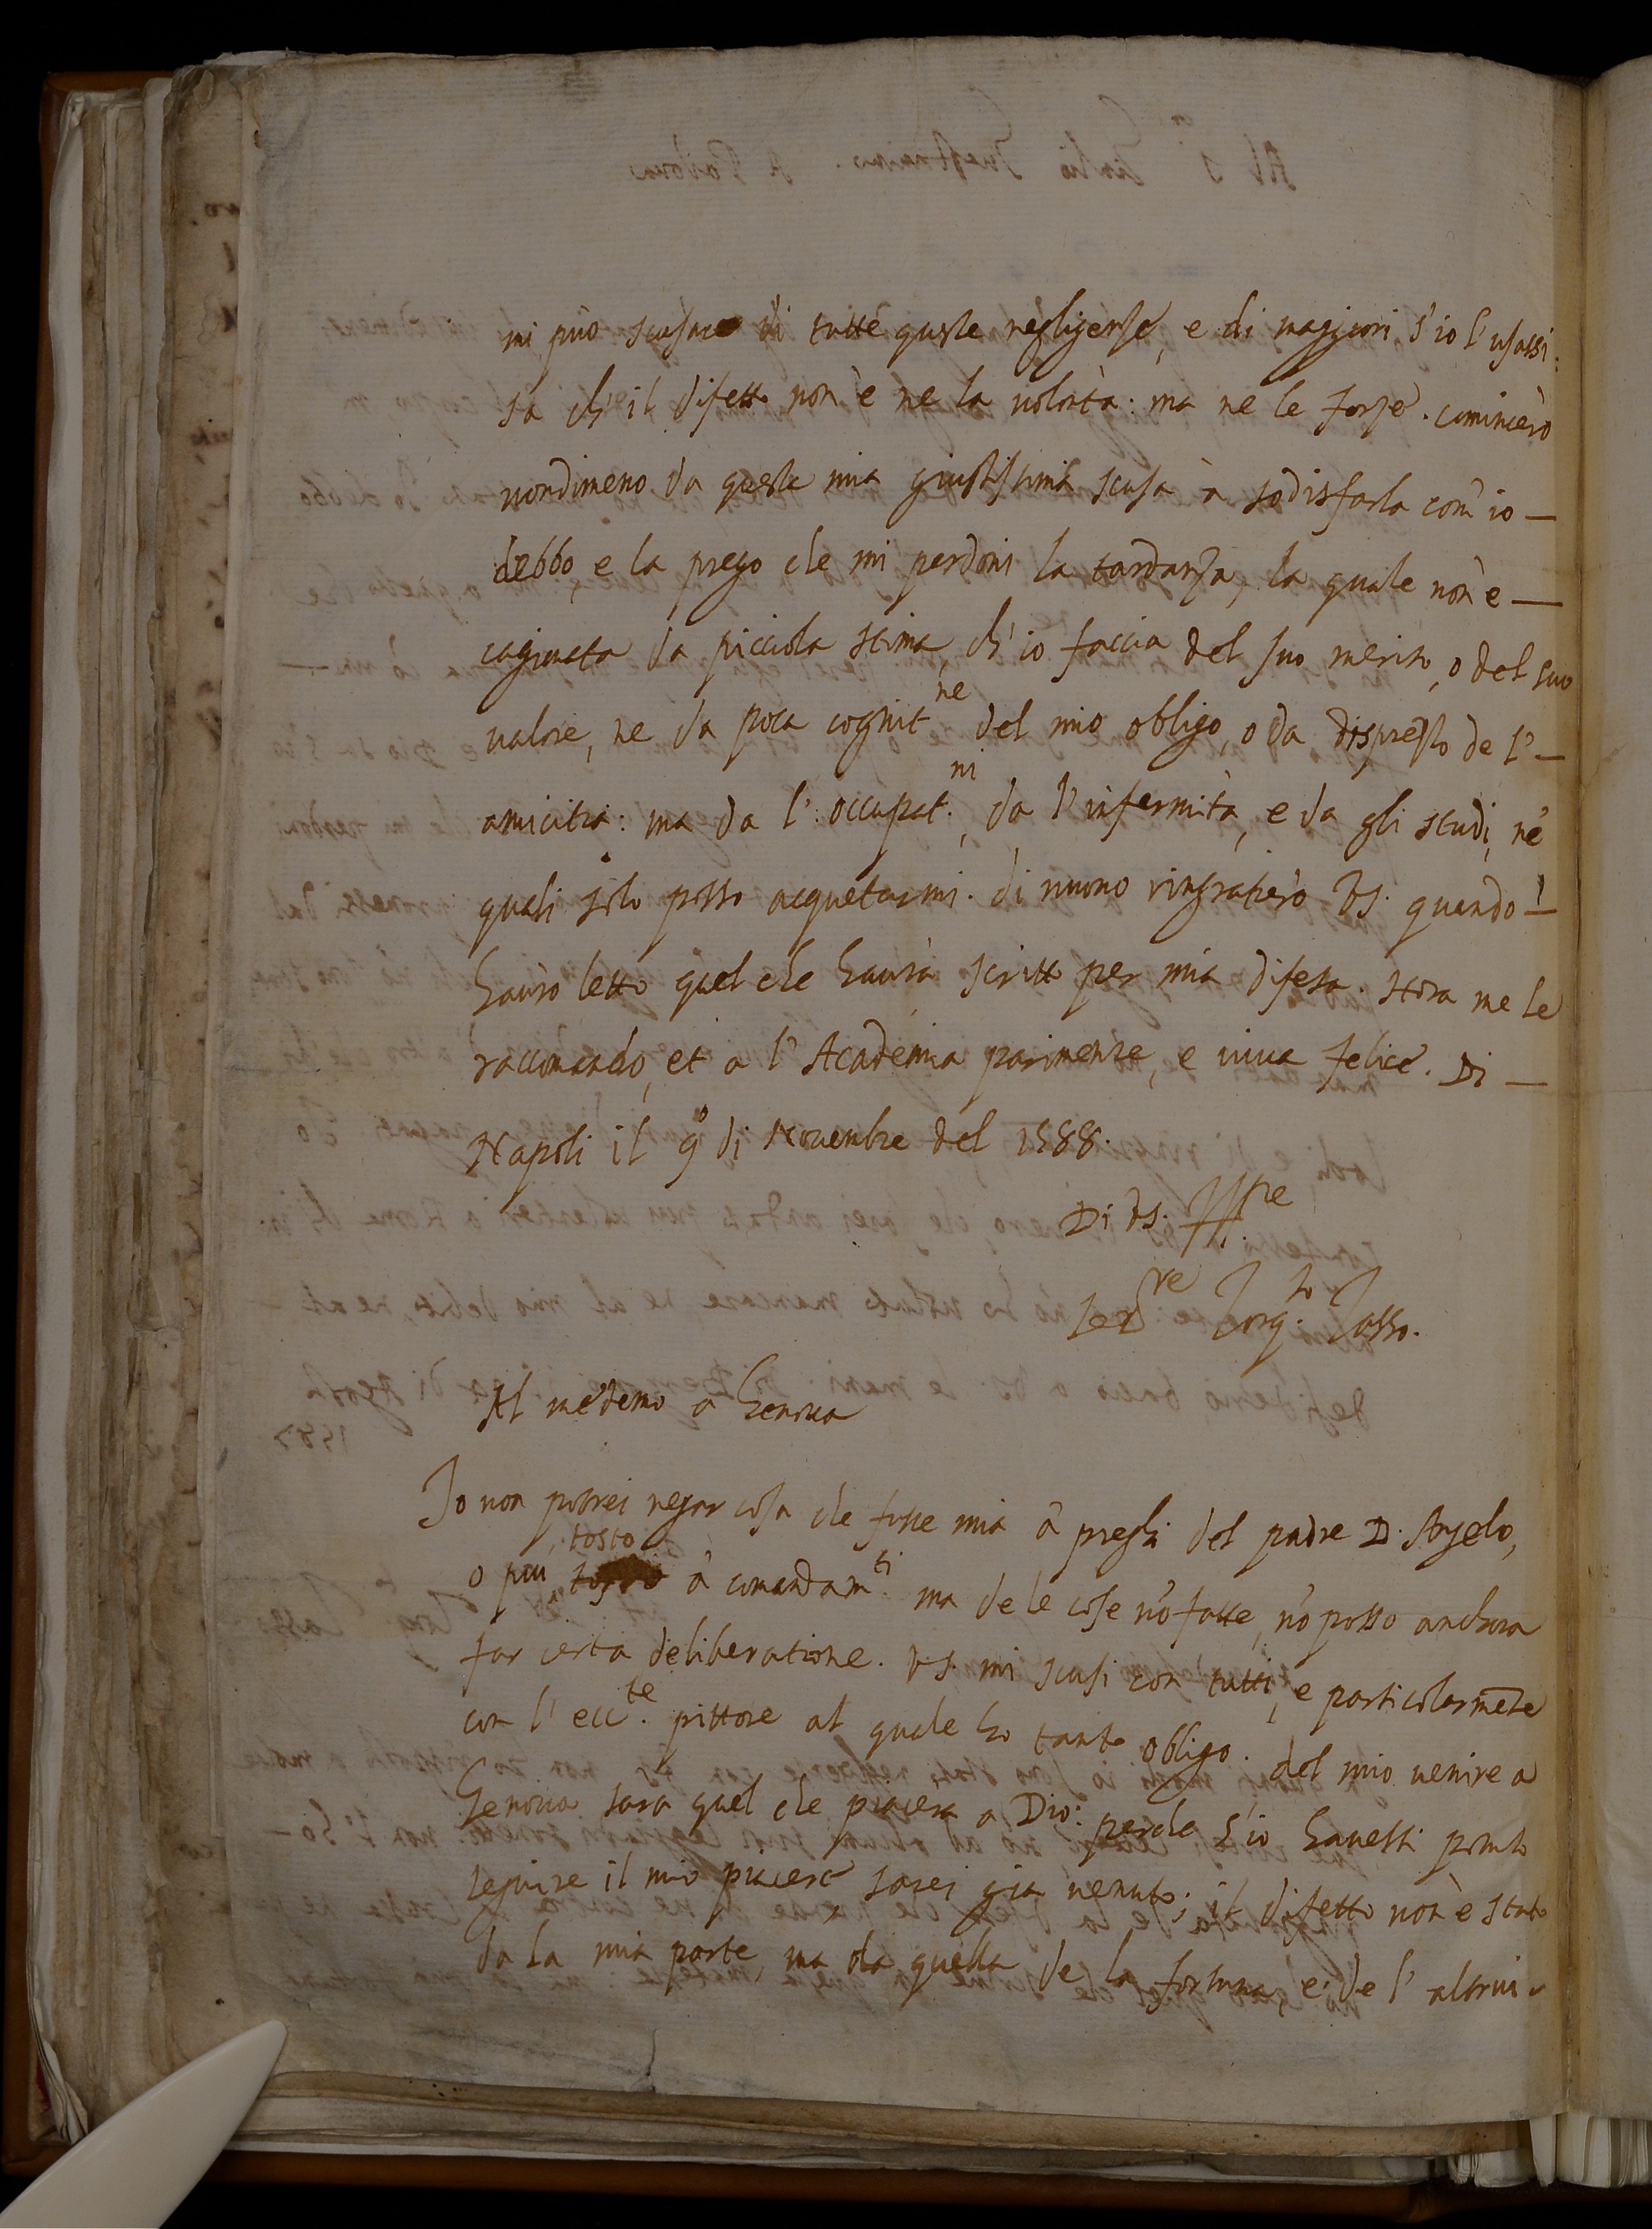 mi può scusare di tutte queste negligenze, e di maggiori, s'io l'usassi:
sa ch'il difetto non è ne la volõtà: ma ne le forze. comincerò
nondimeno da questa mia giustissima scusa à sodisfarla com'io —
debbo, e la prego che mi perdoni la tardanza, la quale non è —
cagionata da picciola stima, ch'io faccia del suo merito, o del suo
valore, ne da poca cognit.ne del mio obligo, o da disprezzo de l' —
amicitia: ma da l'occupat.ni, da l'infermità, e da gli studi, ne'
quali solo posso acquetarmi. di nuouo ringratierò VS. quando —
haurò letto quel che haurà scritto per mia difesa. Hora me le
raccomando, et a l'Academia parimente, e viua felice. Di —
Napoli il 9º di Nouembre del 1588.
Di VS. Ill.re
Ser.re Torq.to Tasso.
Al medemo a Genoua
Io non potrei negar cosa che fosse mia à preghi del padre D. Angelo,
o piu tosto à comandam.ti ma de le cose nõ fatte, nõ posso anchora
far certa deliberatione. VS. mi scusi con tutti, e particolarmẽte
con l'ecc.te pittore al quale ho tanto obligo. del mio uenire a
Genoua sara quel che piacera a Dio: perche s'io hauessi potuto
seguire il mio piacere sarei gia uenuto; il difetto non è stato
da la mia parte, ma da quella de la fortuna, e de l'altrui